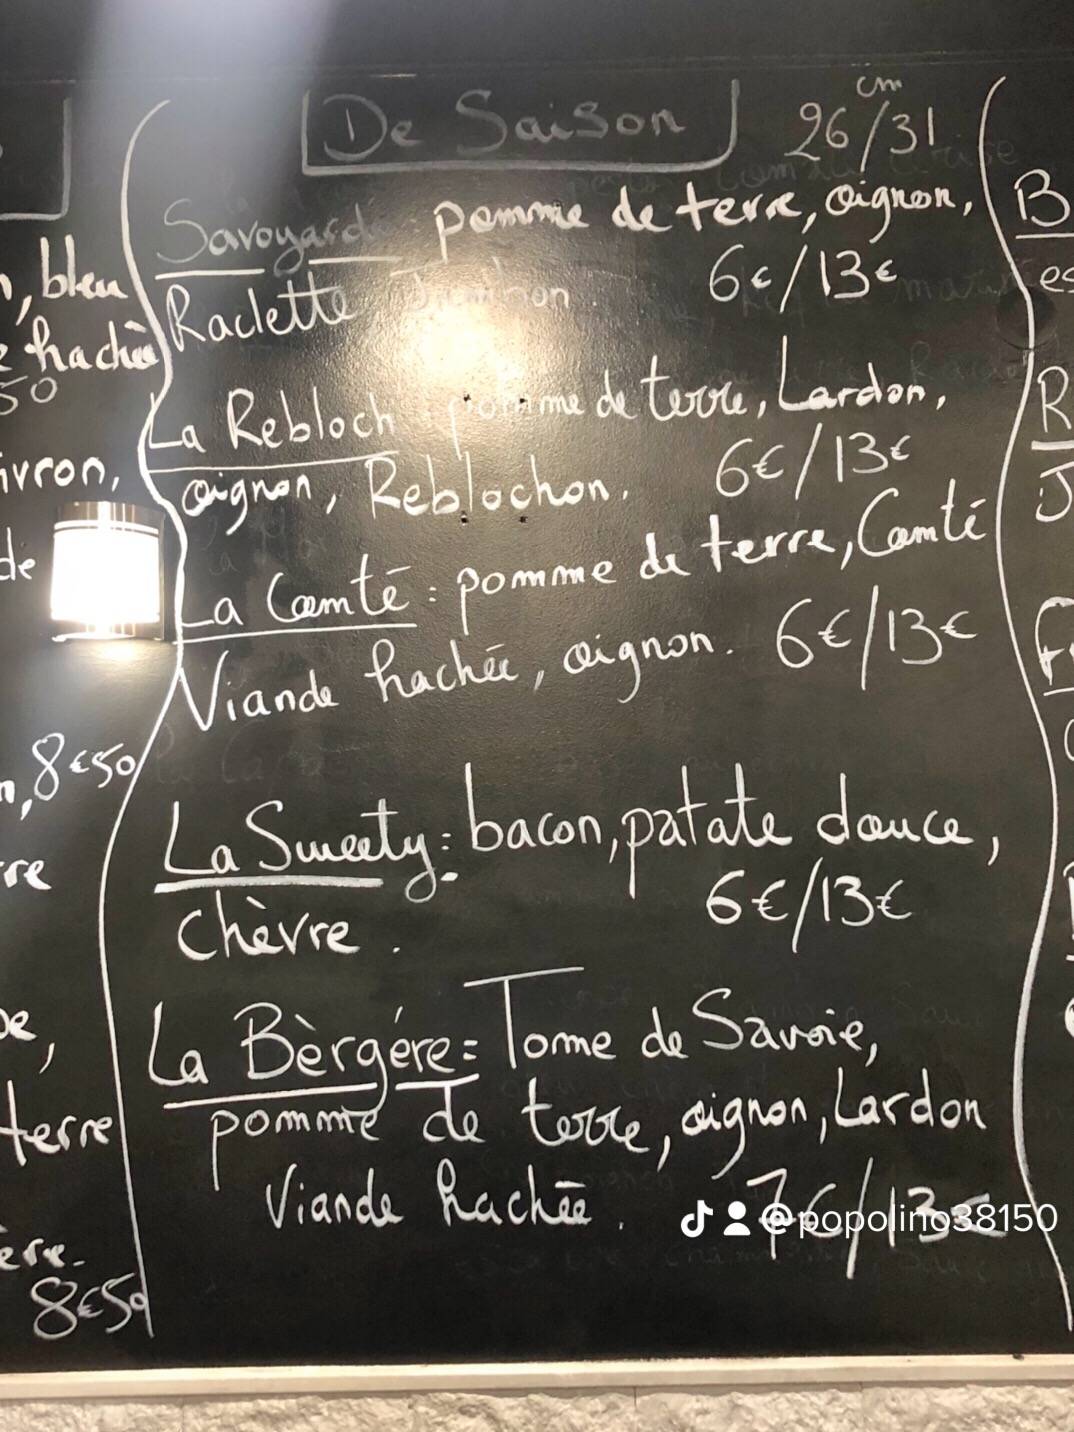 De Saison
cm
26/31
Savoyarde : pomme de terre, oignon,
Raclette Jambon. 6€/13€
La Rebloch : pomme de terre, Lardon,
oignon, Reblochon. 6€/13€
La Comté : pomme de terre, Comté
Viande hachée, oignon. 6€/13€
La Sweety : bacon, patate douce,
chèvre. 6€/13€
La Bèrgére = Tome de Savoie,
pomme de terre, oignon, Lardon
Viande hachée. 7€/13€
@popolino38150
, bleu
hachée
50
ivron,
de
8€50
rre
terre
8€50
B
es
R
J